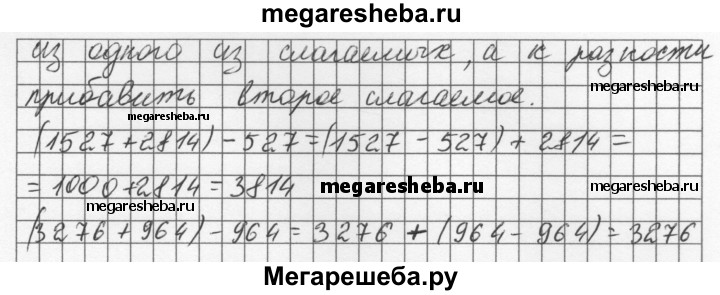 megaresheba.ru
из одного из слагаемых, а к разности
megaresheba.ru
прибавить второе слагаемое.
megaresheba.ru
(1527+2814)-527=(1527-527)+2814=
=1000+2814=3814
megaresheba.ru
megaresheba.ru
megaresheba.ru
(3276+964)-964=3276+(964-964)=3276
Мегарешеба.ру